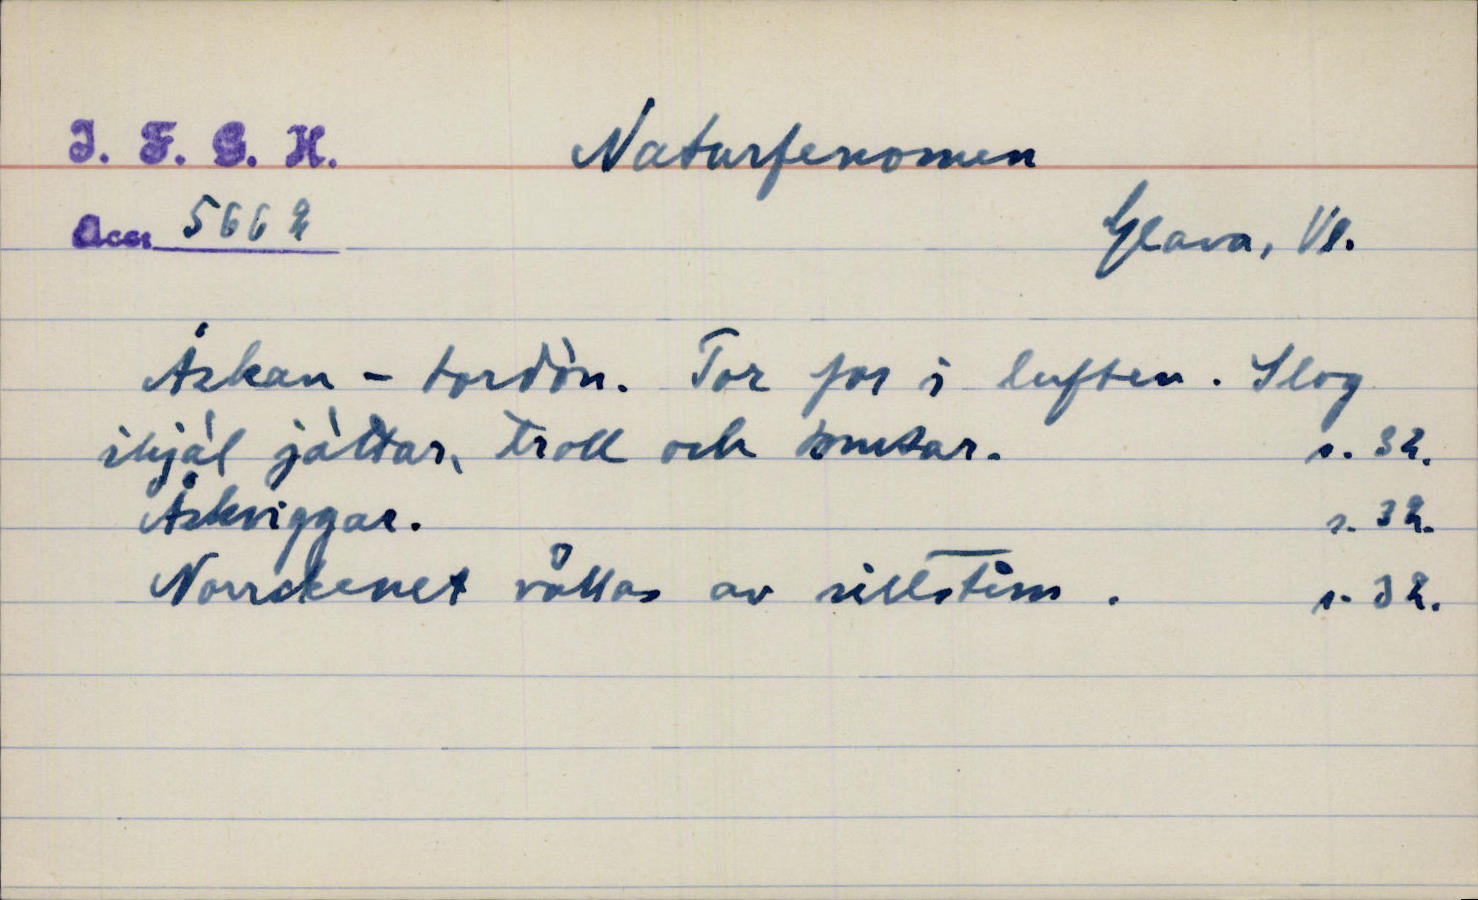 I. F. G. H.
Naturfenomen
Acc. 5662
Glava, Vl.
Åskan - tordön. Tor for i luften. Slog
ihjäl jättar, troll och tomtar. s. 32.
Åskviggar. s. 32.
Norrskenet vållas av sillstim. s. 32.